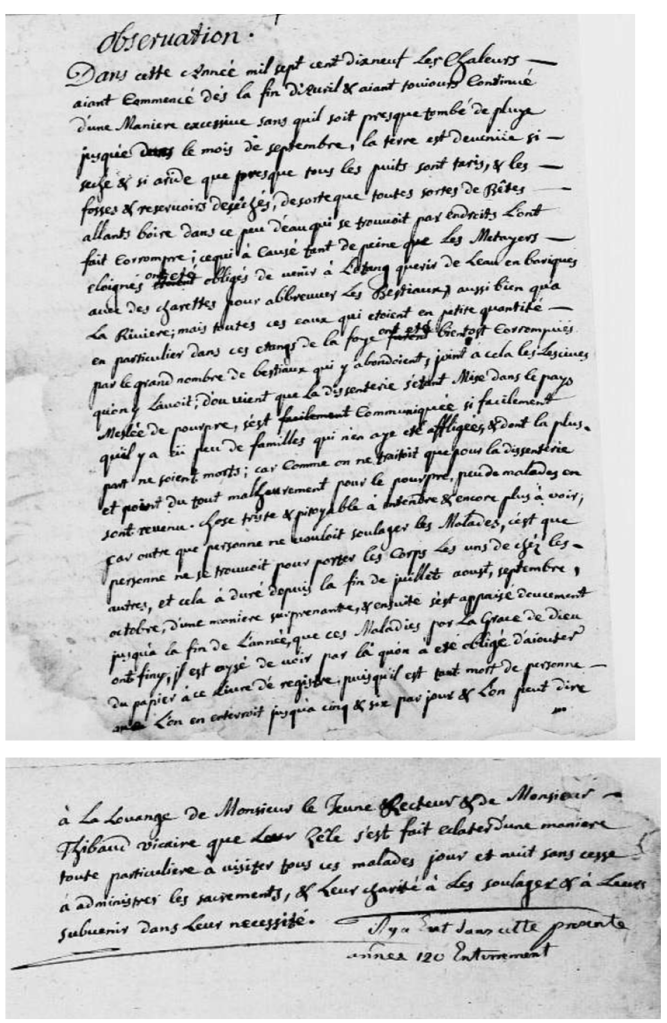 Observation.
Dans cette Année mil sept cent dixneuf Les Chaleurs —
aiant Commencé dés la fin d'Avril & aiant toujours Continué
d'une Maniere excessive sans quil soit presque tombé de pluye
jusque dans le mois de septembre, la terre est devenüe si —
seche & si aride que presque tous les puits sont taris, & les —
fosses & reservoirs deséchés, desorteque toutes sortes de Bêtes —
allants boire dans ce peu d'eau qui se trouvoit par endroits L'ont
fait Corrompre; cequi à Causé tant de peine que Les Metayers —
eloignés ont eté obligés de venir à L'etang querir de Leau en bariques
avec des charettes pour abbreuver Les Bestiaux, aussi bien qu'a
La Riviere; mais toutes ces eaux qui etoient en petite quantité —
en particulier dans ces etangs de la foye ont eté bientost Corrompües
par le grand nombre de bestiaux qui y abondoient, joint a cela les Lescives
quon y Lavoit; d'ou vient que La dissenterie s'etant Mise dans le pays
Meslée de pourpre, s'est facilement Communiquée si facilement
qu'il y a eü peu de familles qui n'en aye eté affligées, & dont la plus-
part ne soient morts; car Comme on ne traitoit que pour la dissenterie
et point du tout malheurement pour le pourpre, peu de malades en
sont revenu. Chose triste & pitoyable à entendre & encore plus à voir,
car outre que personne ne vouloit soulager les Malades, c'est que
personne ne se trouvoit pour porter les Corps Les uns de chéz les-
autres, et cela à duré depuis la fin de juillet aoust, septembre,
octobre, d'une maniere surprenante, & ensuite s'est appaisé doucement
jusqu'a la fin de L'année, que ces Maladies par La Grace de dieu
ont finy, il est aysé de voir par là qu'on à eté obligé d'aiouter
du papier à ce Livre de registre, puisqu'il est tant mort de personne —
L'on en enterroit jusqu'a cinq & six par jour & L'on peut dire
à La Louange de Monsieur le Jeune Recteur & de Monsieur —
Thibaud vicaire que Leur Zéle s'est fait eclater d'une maniere
toute particuliere à visiter tous ces malades jour et nuit sans cesse
à administrer les sacrements, & Leur charité à Les soulager & à Leurs
subvenir dans Leur necessité.
Il y a Eut dans cette presente
année 120 Enterrement